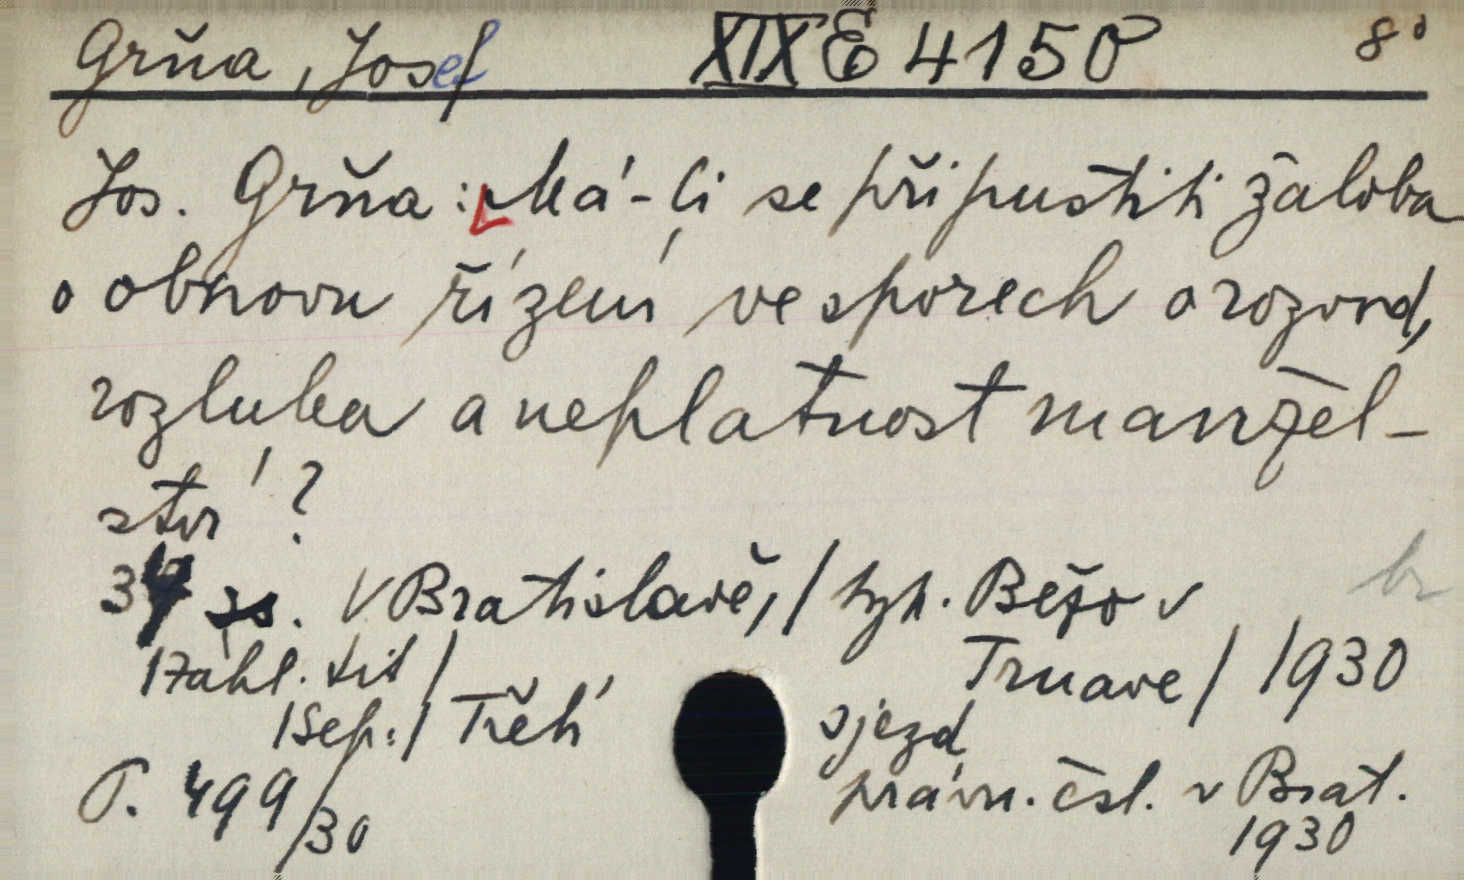 Grňa, Josef XIX E 4150 8°
Jos. Grňa: Má-li se připustiti žaloba
o obnovu řízení ve sporech o rozvod,
rozluka a neplatnost manžel-
ství?
V Bratislavě, / typ. Bežo v
Trnave / 1930
/Záhl. tit/
/Sep:/ Třetí sjezd
právn. čsl. v Brat.
1930
P. 499/30
br